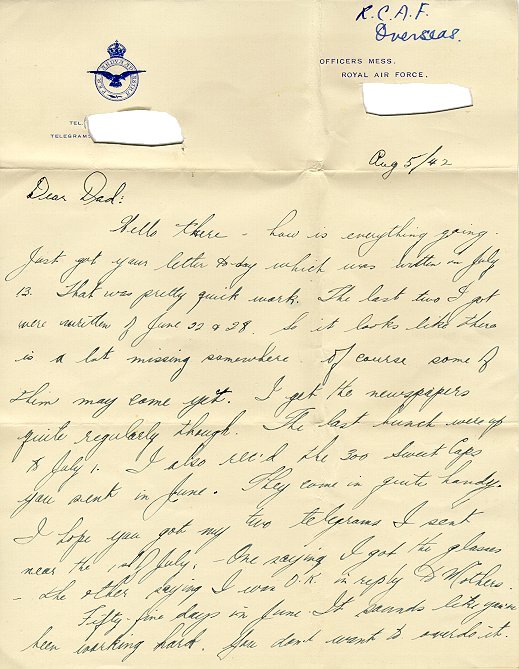 R.C.A.F.
Overseas.
OFFICERS MESS.
ROYAL AIR FORCE.
TEL.
TELEGRAMS
Aug 5/42
Dear Dad:
Hello there - how is everything going.
Just got your letter to-day which was written on July
13. That was pretty quick work. The last two I got
were written of June 22 & 28. So it looks like there
is a lot missing somewhere. Of course some of
them may come yet. I get the newspapers
quite regularly though. The last bunch were up
to July 1. I also rec'd the 300 Sweet Caps
you sent in June. They come in quite handy.
I hope you got my two telegrams I sent
near the 1st of July. - One saying I got the glasses
- the other saying I was O.K. in reply to Mothers.
Fifty-five days in June. It sounds like you've
been working hard. You don't want to overdo it.